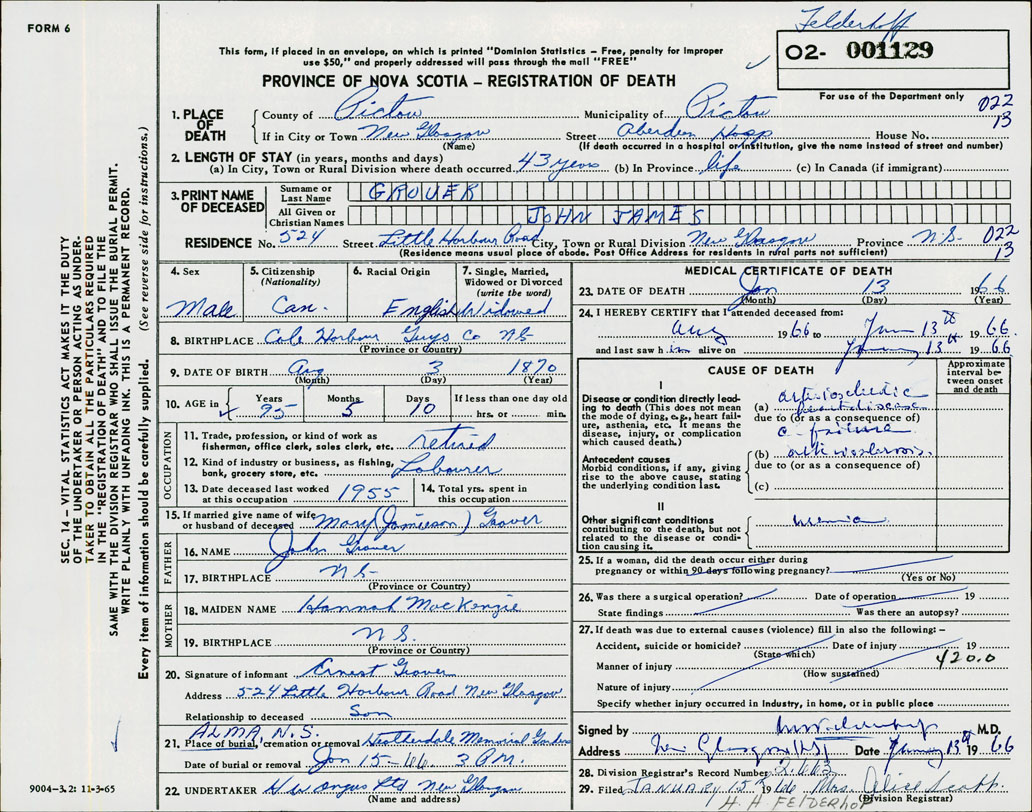 FORM 6
Felderhoff
This form, if placed in an envelope, on which is printed "Dominion Statistics – Free, penalty for improper
use $50," and properly addressed will pass through the mail "FREE"
O2- 001129
PROVINCE OF NOVA SCOTIA – REGISTRATION OF DEATH
For use of the Department only
022
13
1. PLACE OF DEATH
County of Pictou Municipality of Pictou
If in City or Town New Glasgow Street Aberdeen Hosp House No.
(Name) (If death occurred in a hospital or institution, give the name instead of street and number)
2. LENGTH OF STAY (in years, months and days)
(a) In City, Town or Rural Division where death occurred 43 years (b) In Province life (c) In Canada (if immigrant)
3. PRINT NAME OF DECEASED
Surname or Last Name GROVER
All Given or Christian Names JOHN JAMES
RESIDENCE No. 524 Street Little Harbour Road City, Town or Rural Division New Glasgow Province N.S. 022
13
(Residence means usual place of abode. Post Office Address for residents in rural parts not sufficient)
4. Sex
Male
5. Citizenship
(Nationality)
Can.
6. Racial Origin
English
7. Single, Married,
Widowed or Divorced
(write the word)
Widowed
8. BIRTHPLACE Cole Harbour Guys Co NS
(Province or Country)
9. DATE OF BIRTH Aug 3 1870
(Month) (Day) (Year)
10. AGE in
Years 95 Months 5 Days 10 If less than one day old
hrs. or min.
OCCUPATION
11. Trade, profession, or kind of work as
fisherman, office clerk, sales clerk, etc. retired
12. Kind of industry or business, as fishing,
bank, grocery store, etc. Labourer
13. Date deceased last worked
at this occupation 1955
14. Total yrs. spent in
this occupation
15. If married give name of wife
or husband of deceased Mary (Jamieson) Grover
FATHER
16. NAME John Grover
17. BIRTHPLACE NS
(Province or Country)
MOTHER
18. MAIDEN NAME Hannah MacKenzie
19. BIRTHPLACE N.S.
(Province or Country)
20. Signature of informant Ernest Grover
Address 524 Little Harbour Road New Glasgow
Relationship to deceased Son
ALMA, N.S.
21. Place of burial, cremation or removal Memorial Gardens
Date of burial or removal Jan 15-66 3 P.M.
22. UNDERTAKER H W Angus Ltd New Glasgow
(Name and address)
MEDICAL CERTIFICATE OF DEATH
23. DATE OF DEATH Jan 13 1966
(Month) (Day) (Year)
24. I HEREBY CERTIFY that I attended deceased from:
Aug 1966 to 13th 1966
and last saw him alive on 13th 1966
CAUSE OF DEATH
Approximate
interval be-
tween onset
and death
I
Disease or condition directly lead-
ing to death (This does not mean
the mode of dying, e.g., heart fail-
ure, asthenia, etc. It means the
disease, injury, or complication
which caused death.)
(a) heart disease
due to (or as a consequence of)
c failure
Antecedent causes
Morbid conditions, if any, giving
rise to the above cause, stating
the underlying condition last.
(b)
due to (or as a consequence of)
(c)
II
Other significant conditions
contributing to the death, but not
related to the disease or condi-
tion causing it.
uremia
25. If a woman, did the death occur either during
pregnancy or within 90 days following pregnancy?
(Yes or No)
26. Was there a surgical operation? Date of operation 19
State findings Was there an autopsy?
27. If death was due to external causes (violence) fill in also the following: –
Accident, suicide or homicide? Date of injury 19
(State which)
420.0
Manner of injury
(How sustained)
Nature of injury
Specify whether injury occurred in industry, in home, or in public place
Signed by M.D.
Address New Glasgow NS Date 13th 1966
28. Division Registrar's Record Number 2663
29. Filed JANUARY 15 1966 Mrs. Alice Scott
H. A FELDERHOF
(Division Registrar)
SEC. 14 – VITAL STATISTICS ACT MAKES IT THE DUTY
OF THE UNDERTAKER OR PERSON ACTING AS UNDER-
TAKER TO OBTAIN ALL THE PARTICULARS REQUIRED
IN THE "REGISTRATION OF DEATH" AND TO FILE THE
SAME WITH THE DIVISION REGISTRAR WHO SHALL ISSUE THE BURIAL PERMIT.
WRITE PLAINLY WITH UNFADING INK. THIS IS A PERMANENT RECORD.
Every item of information should be carefully supplied. (See reverse side for instructions.)
9004–3.2: 11-3-65